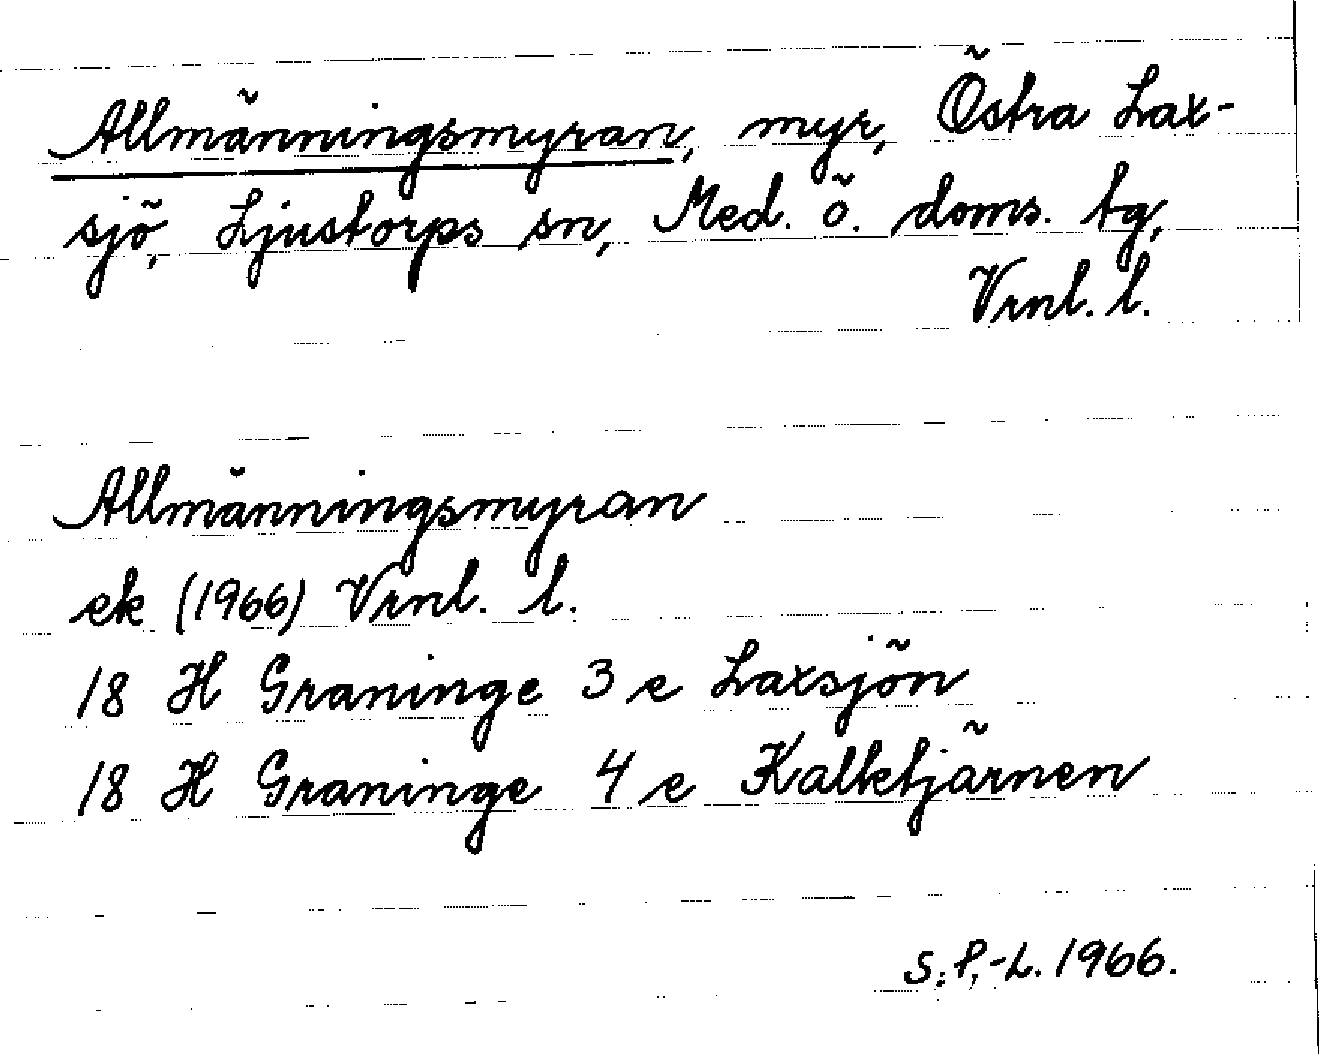 Allmänningsmyran, myr, Östra Lax-
sjö, Ljustorps sn, Med. ö. doms. tg,
Vrnl. l.
Allmänningsmyran
ek (1966) Vrnl. l.
18 H Graninge 3 e Laxsjön
18 H Graninge 4 e Kalktjärnen
S. P.-L. 1966.